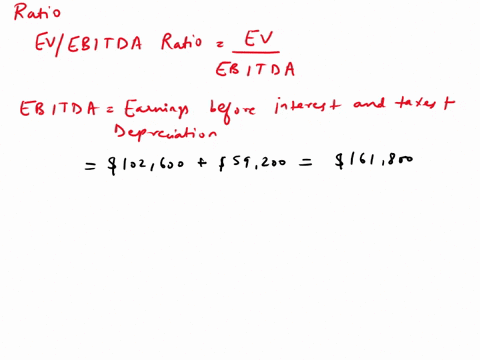 Ratio
EV/EBITDA Ratio = EV
EBITDA
EBITDA = Earnings before interest and taxes +
Depreciation
= $102,600 + $59,200 = $161,800